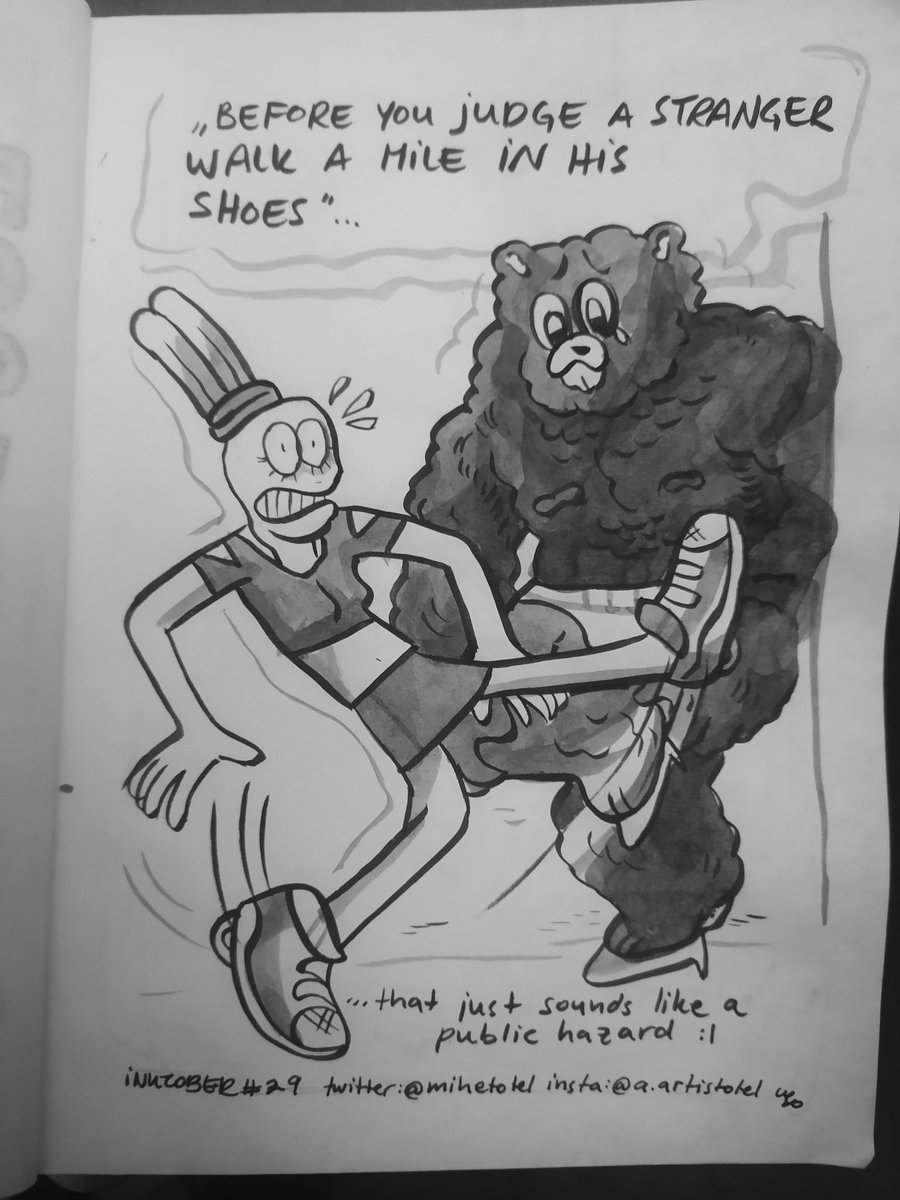 „BEFORE YOU JUDGE A STRANGER
WALK A MILE IN HIS
SHOES"...
...that just sounds like a
public hazard :|
INKTOBER #29 twitter:@mihetotel insta:@a.artistotel